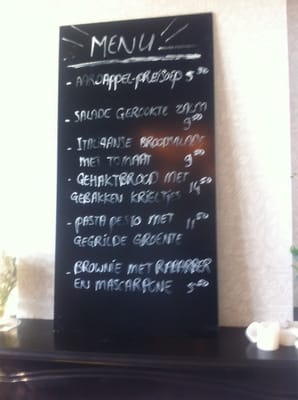 MENU
- AARDAPPEL-PREISOEP 5.50
- SALADE GEROOKTE ZALM
9.50
- ITALIAANSE BROODSALADE
MET TOMAAT 9.50
- GEHAKTBROOD MET
GEBAKKEN KRIELTJES 14.50
- PASTA PESTO MET 11.50
GEGRILDE GROENTE
- BROWNIE MET RABARBER
EN MASCARPONE 5.50